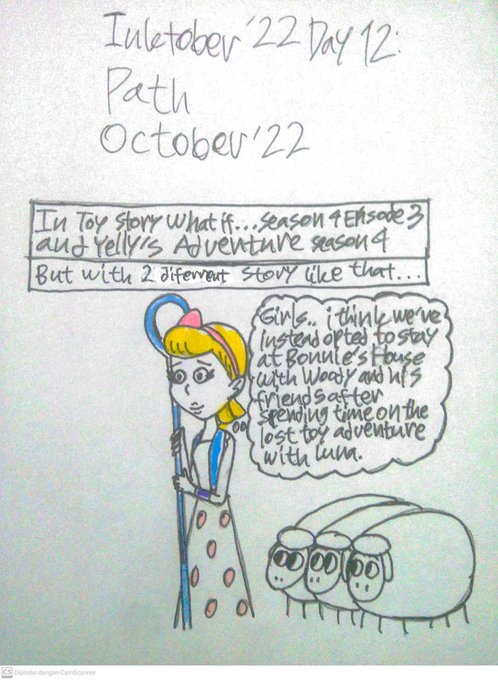 Inktober '22 Day 12:
Path
October '22
In Toy Story What if... season 4 Episode 3
and Yelly's Adventure season 4
But with 2 diferrent story like that...
Girls.. i think we've
instead opted to stay
at Bonnie's House
with Woody and his
friends after
spending time on the
lost toy adventure
with luna.
CS Dipindai dengan CamScanner